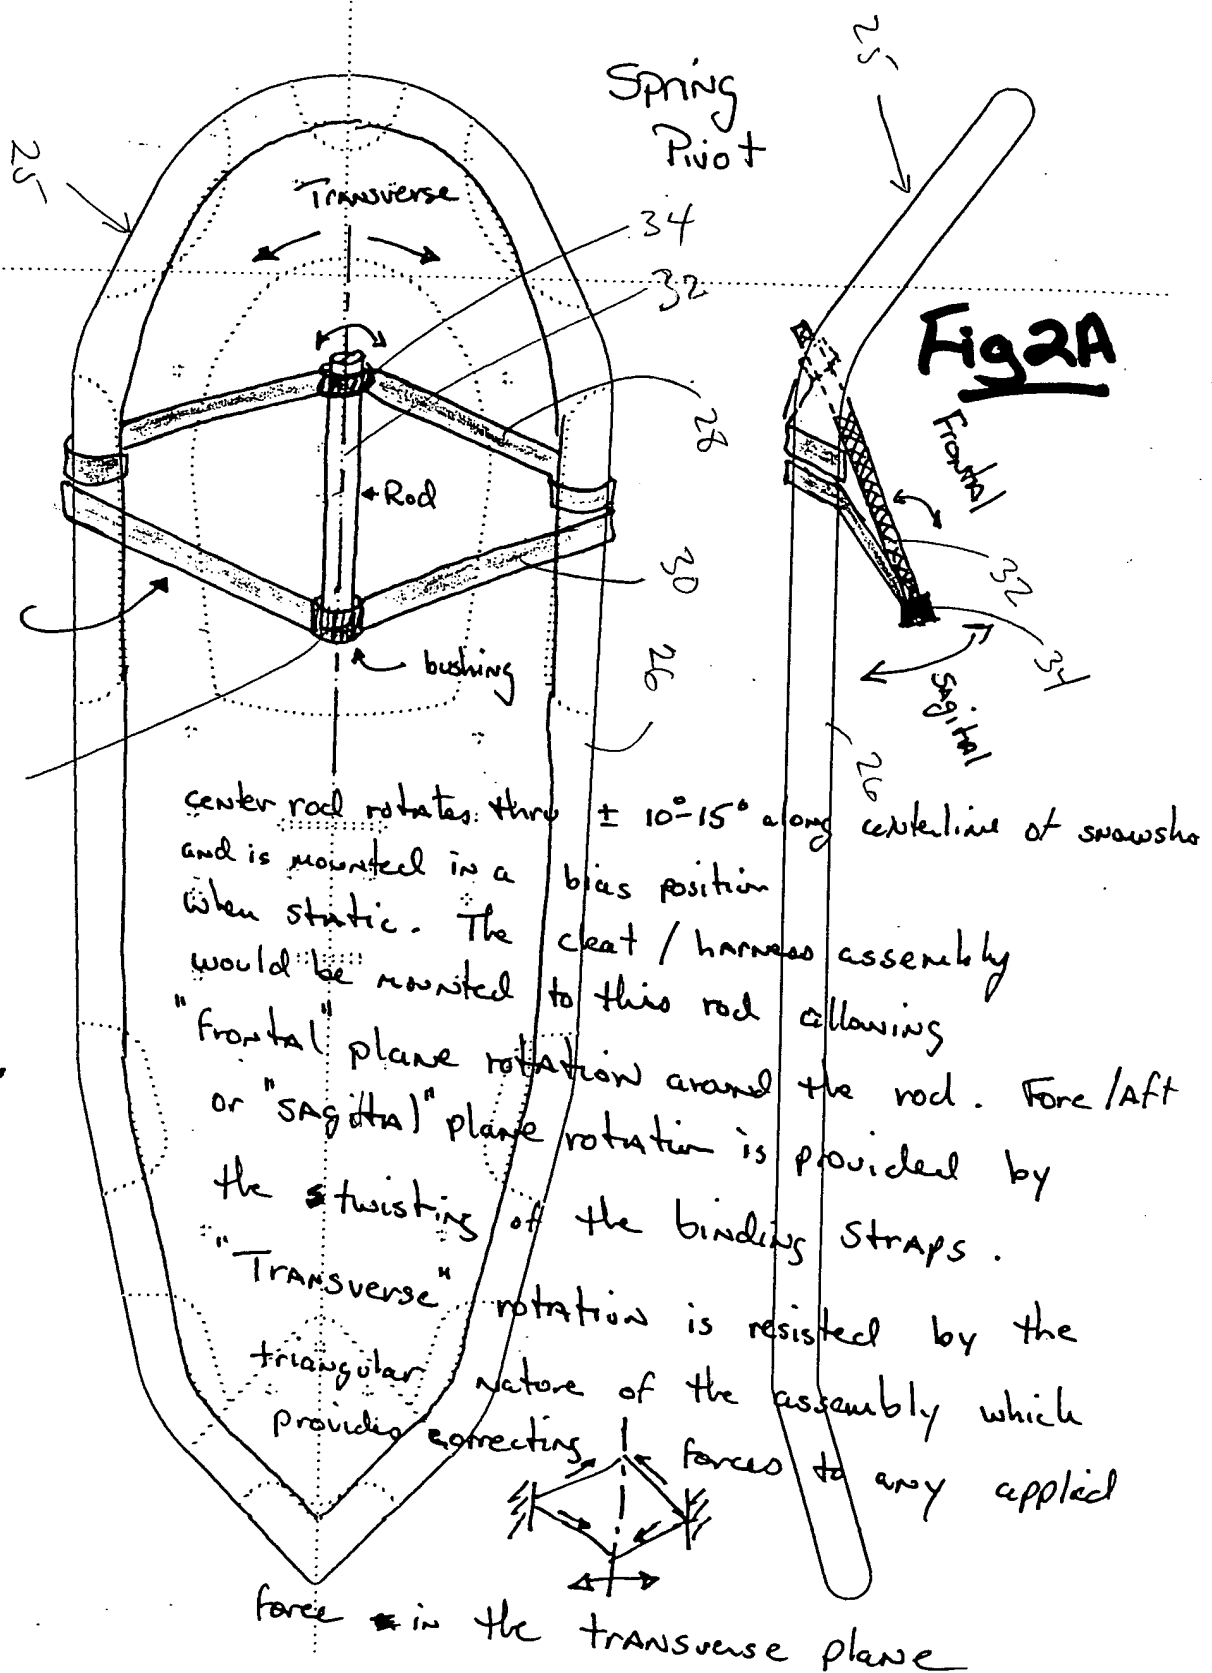 Spring
Pivot
25
25
Transverse
34
32
Fig 2A
28
Frontal
Rod
30
32
34
bushing
26
Sagittal
26
center rod rotates thru ± 10°-15° along centerline of snowsho
and is mounted in a bias position
when static. The cleat / harness assembly
would be mounted to this rod allowing
"frontal" plane rotation around the rod. Fore/Aft
or "sagittal" plane rotation is provided by
the twisting of the binding straps.
"Transverse" rotation is resisted by the
triangular nature of the assembly which
provides correcting forces to any applied
force in the transverse plane